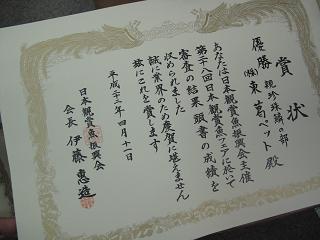 賞状
優勝 親珍珠鱗の部
(株)東葛ペット殿
あなたは日本観賞魚振興会主催
第二十八回日本観賞魚フェアに於いて
審査の結果頭書の成績を
収められました
誠に業界のため慶賀に堪えません
茲にこれを賞します
平成二十二年四月十一日
日本観賞魚振興会
会長 伊藤惠造